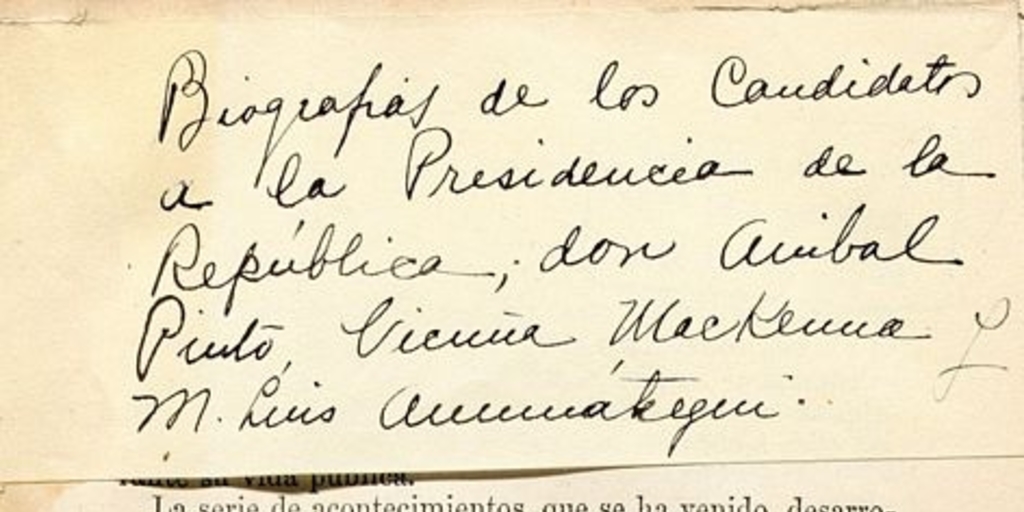 Biografías de los Candidatos
a la Presidencia de la
República; don Anibal
Pinto, Vicuña MacKenna y
M. Luis Amunátegui.
rante su vida pública.
La serie de acontecimientos, que se ha venido desarro-